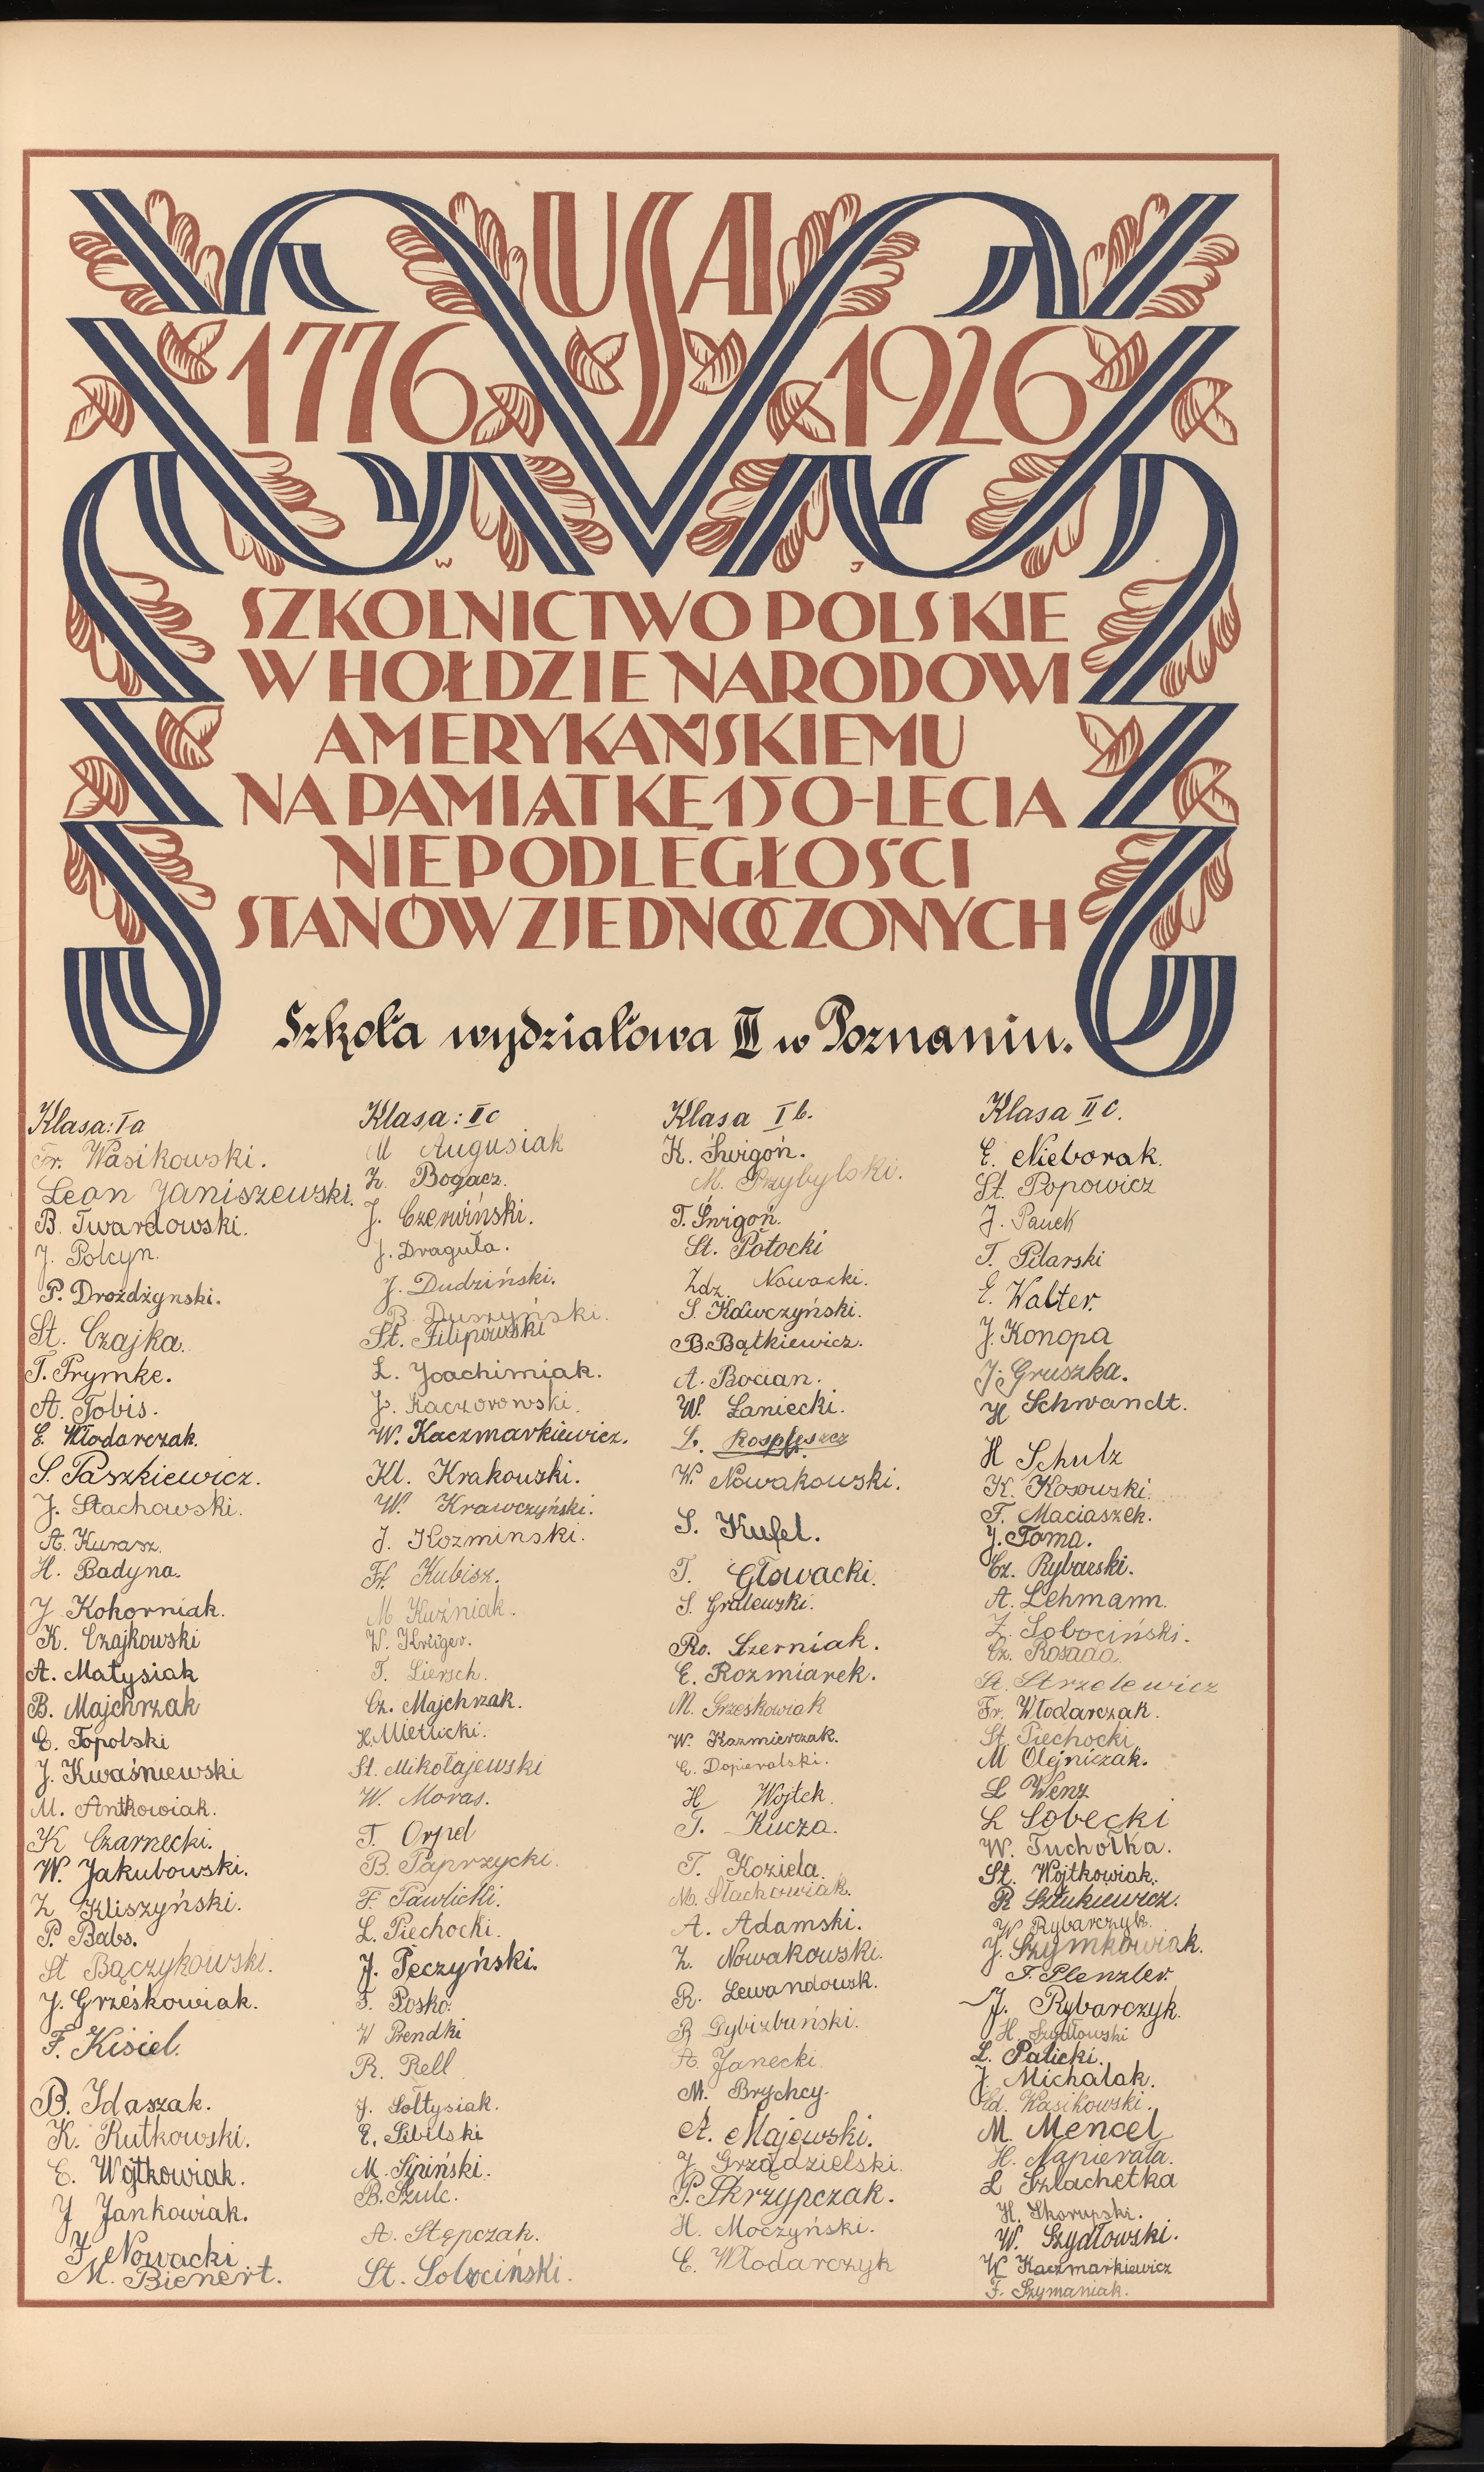 USA
1776 1926
W J
SZKOLNICTWO POLSKIE
W HOŁDZIE NARODOWI
AMERYKAŃSKIEMU
NA PAMIĄTKĘ 150-LECIA
NIEPODLEGŁOŚCI
STANÓW ZJEDNOCZONYCH
Szkoła wydziałowa III w Poznaniu.
Klasa: Ia
Fr. Wasikowski.
Leon Janiszewski.
B. Twardowski.
J. Polcyn.
P. Drożdżynski.
St. Czajka.
T. Prymke.
A. Tobis.
E. Włodarczak.
S. Paszkiewicz.
J. Stachowski.
A. Kurasz.
H. Badyna.
J. Kokorniak.
K. Czajkowski
A. Matysiak
B. Majchrzak
E. Topolski
J. Kwaśniewski
M. Antkowiak.
K Czarnecki.
W. Jakubowski.
Z Kliszyński.
P. Babs.
St Bączykowski.
J. Grześkowiak.
F. Kisiel.
B. Idaszak.
K. Rutkowski.
E. Wojtkowiak.
J Jankowiak.
F. Nowacki
M. Bienert.
Klasa: IIc
M Augusiak
Z. Bogacz.
J. Czerwiński.
J. Draguła.
J. Dudziński.
B. Duszyński.
St. Filipowski
L. Joachimiak.
J. Kaczorowski.
W. Kaczmarkiewicz.
Kl. Krakowski.
W. Krawczyński.
J. Kozminski.
Fr. Kubisz.
M Kuźniak.
W. Krüger.
T. Liersch.
Cz. Majchrzak.
H. Mietlicki.
St. Mikołajewski
W. Moras.
T. Orpel
B. Paprzycki.
F. Pawlicki.
L. Piechocki.
J. Peczyński.
F. Posko.
W Prendki
R. Rell
J. Sołtysiak.
E. Sibilski
M. Sipiński.
B. Szulc.
A. Stępczak.
St. Sobociński.
Klasa Ib.
K. Świgoń.
M. Przybylski.
T. Świgoń.
St. Potocki
Zdz. Nowacki.
S. Kawczyński.
B. Bątkiewicz.
A. Bocian.
W. Łaniecki.
L. Rospleszcz
W. Nowakowski.
S. Kufel.
T. Głowacki.
S. Gralewski.
Ro. Szerniak.
E. Rozmiarek.
M. Grześkowiak
W. Kazmierczak.
E. Dopieralski.
H Wojtek.
T. Kucza.
T. Koziela.
M. Stachowiak.
A. Adamski.
Z. Nowakowski.
R. Lewandowsk.
R Dybizbański.
A. Janecki
M. Brychcy.
A. Majewski.
J. Grządzielski.
P. Skrzypczak.
H. Moczyński.
E. Włodarczyk
Klasa IIc.
E. Nieborak.
St. Popowicz
J. Panek
T. Pilarski
E. Walter.
J. Konopa
J. Gruszka.
H Schwandt.
H Schulz
K. Kosowski.
T. Maciaszek.
J. Toma.
Cz. Rybarski.
A. Lehmann.
Z. Sobociński.
Cz. Rosada.
St. Strzelewicz
Fr. Włodarczak.
St. Piechocki
M Olejniczak.
L Wenz
L Sobecki
W. Tuchołka.
St. Wojtkowiak.
R Sztukiewicz.
W Rybarczyk.
J. Szymkowiak.
F. Plenzler.
J. Rybarczyk.
H. Szydłowski
L. Palicki.
J. Michalak.
Ed. Wasikowski.
M. Mencel
H. Napierała.
L Szlachetka
H. Skorupski.
W. Szydłowski.
W Kaczmarkiewicz
F. Szymaniak.